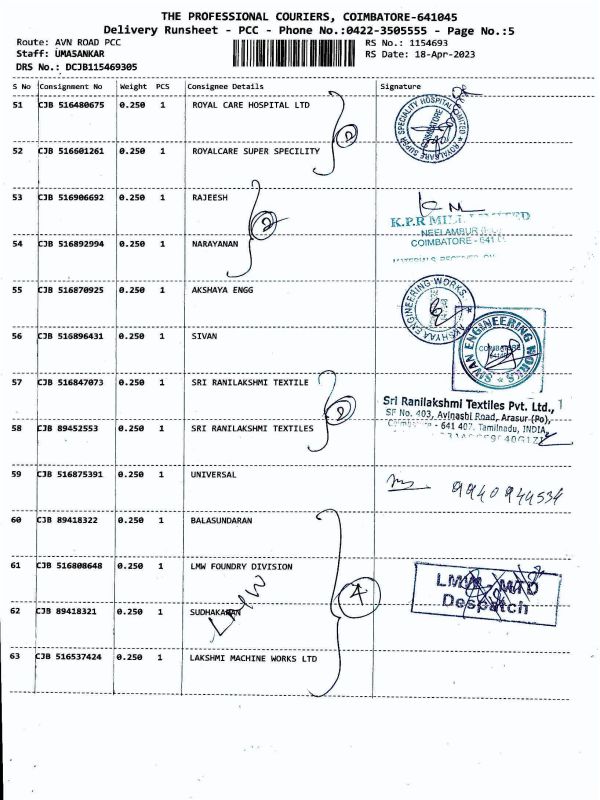 THE PROFESSIONAL COURIERS, COIMBATORE-641045
Delivery Runsheet - PCC - Phone No.:0422-3505555 - Page No.:5
Route: AVN ROAD PCC
RS No.: 1154693
Staff: UMASANKAR
RS Date: 18-Apr-2023
DRS No.: DCJB115469305
S No Consignment No Weight PCS Consignee Details Signature
51 CJB 516480675 0.250 1 ROYAL CARE HOSPITAL LTD
ROYALCARE SUPER SPECIALITY HOSPITAL LIMITED
COIMBATORE
2
52 CJB 516601261 0.250 1 ROYALCARE SUPER SPECILITY
53 CJB 516906692 0.250 1 RAJEESH
K.P.R MILL LIMITED
2
NEELAMBUR
54 CJB 516892994 0.250 1 NARAYANAN
COIMBATORE - 641
MATERIALS RECEIVED ON
55 CJB 516870925 0.250 1 AKSHAYA ENGG
AKSHYAA ENGINEERING WORKS
56 CJB 516896431 0.250 1 SIVAN
SIVAN ENGINEERING WORKS
COIMBATORE
57 CJB 516847073 0.250 1 SRI RANILAKSHMI TEXTILE
2
Sri Ranilakshmi Textiles Pvt. Ltd.,
SF No. 403, Avinashi Road, Arasur (Po),
58 CJB 89452553 0.250 1 SRI RANILAKSHMI TEXTILES
Coimbatore - 641 407. Tamilnadu, INDIA,
59 CJB 516875391 0.250 1 UNIVERSAL
9940944534
60 CJB 89418322 0.250 1 BALASUNDARAN
61 CJB 516808648 0.250 1 LMW FOUNDRY DIVISION
LMW - MTD
Despatch
4
62 CJB 89418321 0.250 1 SUDHAKARAN
LMW
63 CJB 516537424 0.250 1 LAKSHMI MACHINE WORKS LTD